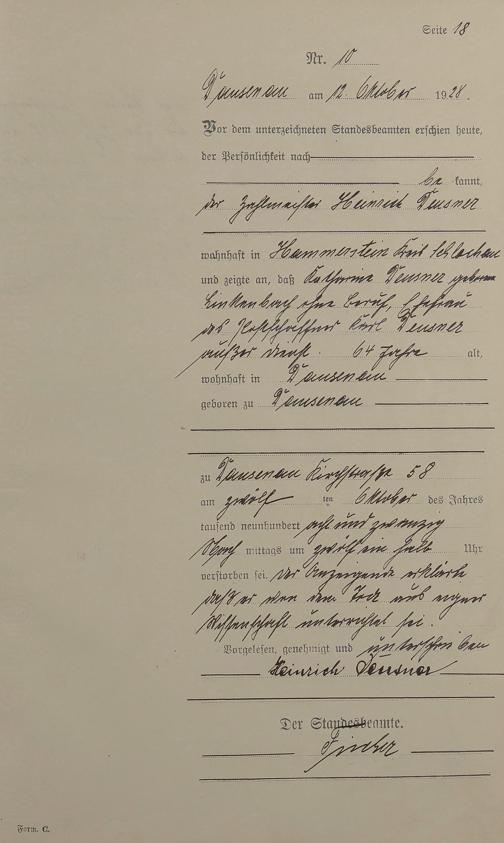 Seite 18
Nr. 10
Dausenau am 12. Oktober 1928.
Vor dem unterzeichneten Standesbeamten erschien heute,
der Persönlichkeit nach
be kannt,
der Zahlmeister Heinrich Deusner
wohnhaft in Hammerstein Kreis Schlochau
und zeigte an, daß Katharina Deusner geborene
Linkenbach ohne Beruf, Ehefrau
des Postschaffner Karl Deusner
außer Dienst. 64 Jahre alt,
wohnhaft in Dausenau
geboren zu Dausenau
zu Dausenau Kirchstraße 58
am zwölf ten Oktober des Jahres
tausend neunhundert acht und zwanzig
Nach mittags um zwölf ein halb Uhr
verstorben sei. Der Anzeigende erklärte
daß er von dem Tod aus eigner
Wissenschaft unterrichtet sei.
Vorgelesen, genehmigt und unterschrieben
Heinrich Deusner
Der Standesbeamte.
Form. C.